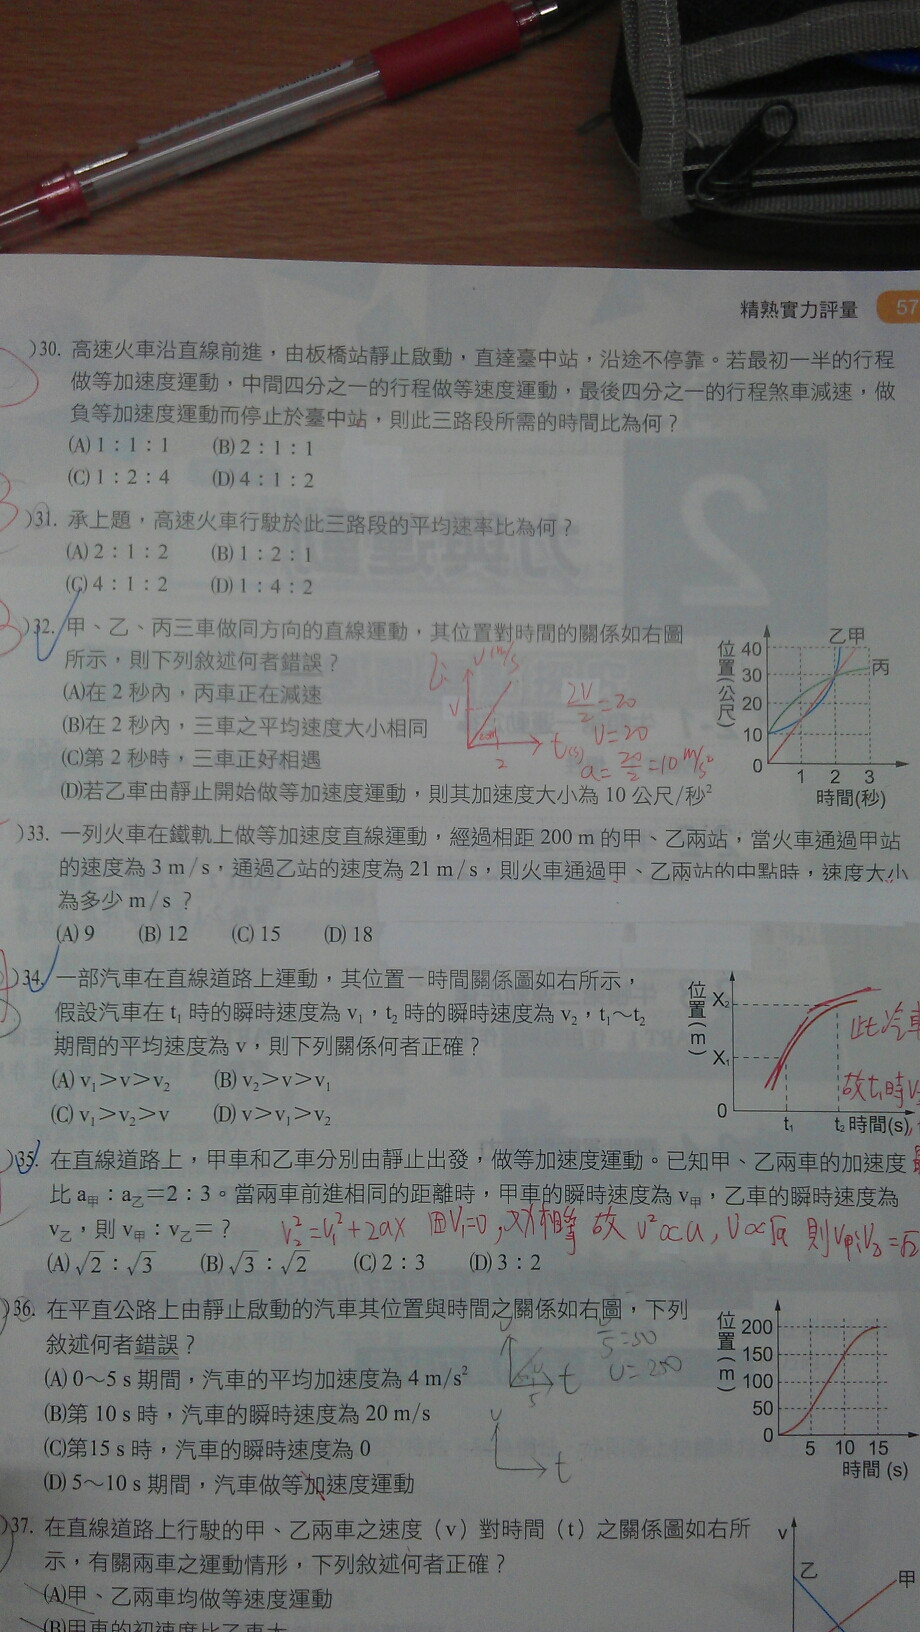 精熟實力評量 57
)30. 高速火車沿直線前進，由板橋站靜止啟動，直達臺中站，沿途不停靠。若最初一半的行程
做等加速度運動，中間四分之一的行程做等速度運動，最後四分之一的行程煞車減速，做
負等加速度運動而停止於臺中站，則此三路段所需的時間比為何？
(A) 1：1：1 (B) 2：1：1
(C) 1：2：4 (D) 4：1：2
)31. 承上題，高速火車行駛於此三路段的平均速率比為何？
(A) 2：1：2 (B) 1：2：1
(C) 4：1：2 (D) 1：4：2
)32. 甲、乙、丙三車做同方向的直線運動，其位置對時間的關係如右圖
所示，則下列敘述何者錯誤？
(A)在 2 秒內，丙車正在減速
(B)在 2 秒內，三車之平均速度大小相同
(C)第 2 秒時，三車正好相遇
(D)若乙車由靜止開始做等加速度運動，則其加速度大小為 10 公尺/秒²
乙: v m/s
v
2
t(s)
2V/2=20
V=20
a=20/2=10 m/s²
位置(公尺)
乙甲
丙
40
30
20
10
0
1 2 3
時間(秒)
)33. 一列火車在鐵軌上做等加速度直線運動，經過相距 200 m 的甲、乙兩站，當火車通過甲站
的速度為 3 m/s，通過乙站的速度為 21 m/s，則火車通過甲、乙兩站的中點時，速度大小
為多少 m/s ？
(A) 9 (B) 12 (C) 15 (D) 18
)34. 一部汽車在直線道路上運動，其位置－時間關係圖如右所示，
假設汽車在 t₁ 時的瞬時速度為 v₁，t₂ 時的瞬時速度為 v₂，t₁～t₂
期間的平均速度為 v，則下列關係何者正確？
(A) v₁＞v＞v₂ (B) v₂＞v＞v₁
(C) v₁＞v₂＞v (D) v＞v₁＞v₂
位置(m)
X₂
X₁
0
t₁ t₂ 時間(s)
此汽車
故t₁時V
)35. 在直線道路上，甲車和乙車分別由靜止出發，做等加速度運動。已知甲、乙兩車的加速度
比 a甲：a乙＝2：3。當兩車前進相同的距離時，甲車的瞬時速度為 v甲，乙車的瞬時速度為
v乙，則 v甲：v乙＝？
V₂²=V₁²+2ax 因V₁=0, 又X相等 故 V²∝a, V∝√a 則V甲:V乙=√2
(A) √2：√3 (B) √3：√2 (C) 2：3 (D) 3：2
)36. 在平直公路上由靜止啟動的汽車其位置與時間之關係如右圖，下列
敘述何者錯誤？
(A) 0～5 s 期間，汽車的平均加速度為 4 m/s²
(B)第 10 s 時，汽車的瞬時速度為 20 m/s
(C)第15 s 時，汽車的瞬時速度為 0
(D) 5～10 s 期間，汽車做等加速度運動
v
5
t
v/5=50
v=250
v
t
位置(m)
200
150
100
50
0
5 10 15
時間 (s)
)37. 在直線道路上行駛的甲、乙兩車之速度（v）對時間（t）之關係圖如右所
示，有關兩車之運動情形，下列敘述何者正確？
(A)甲、乙兩車均做等速度運動
(B)甲車的初速度比乙車大
v
乙
甲